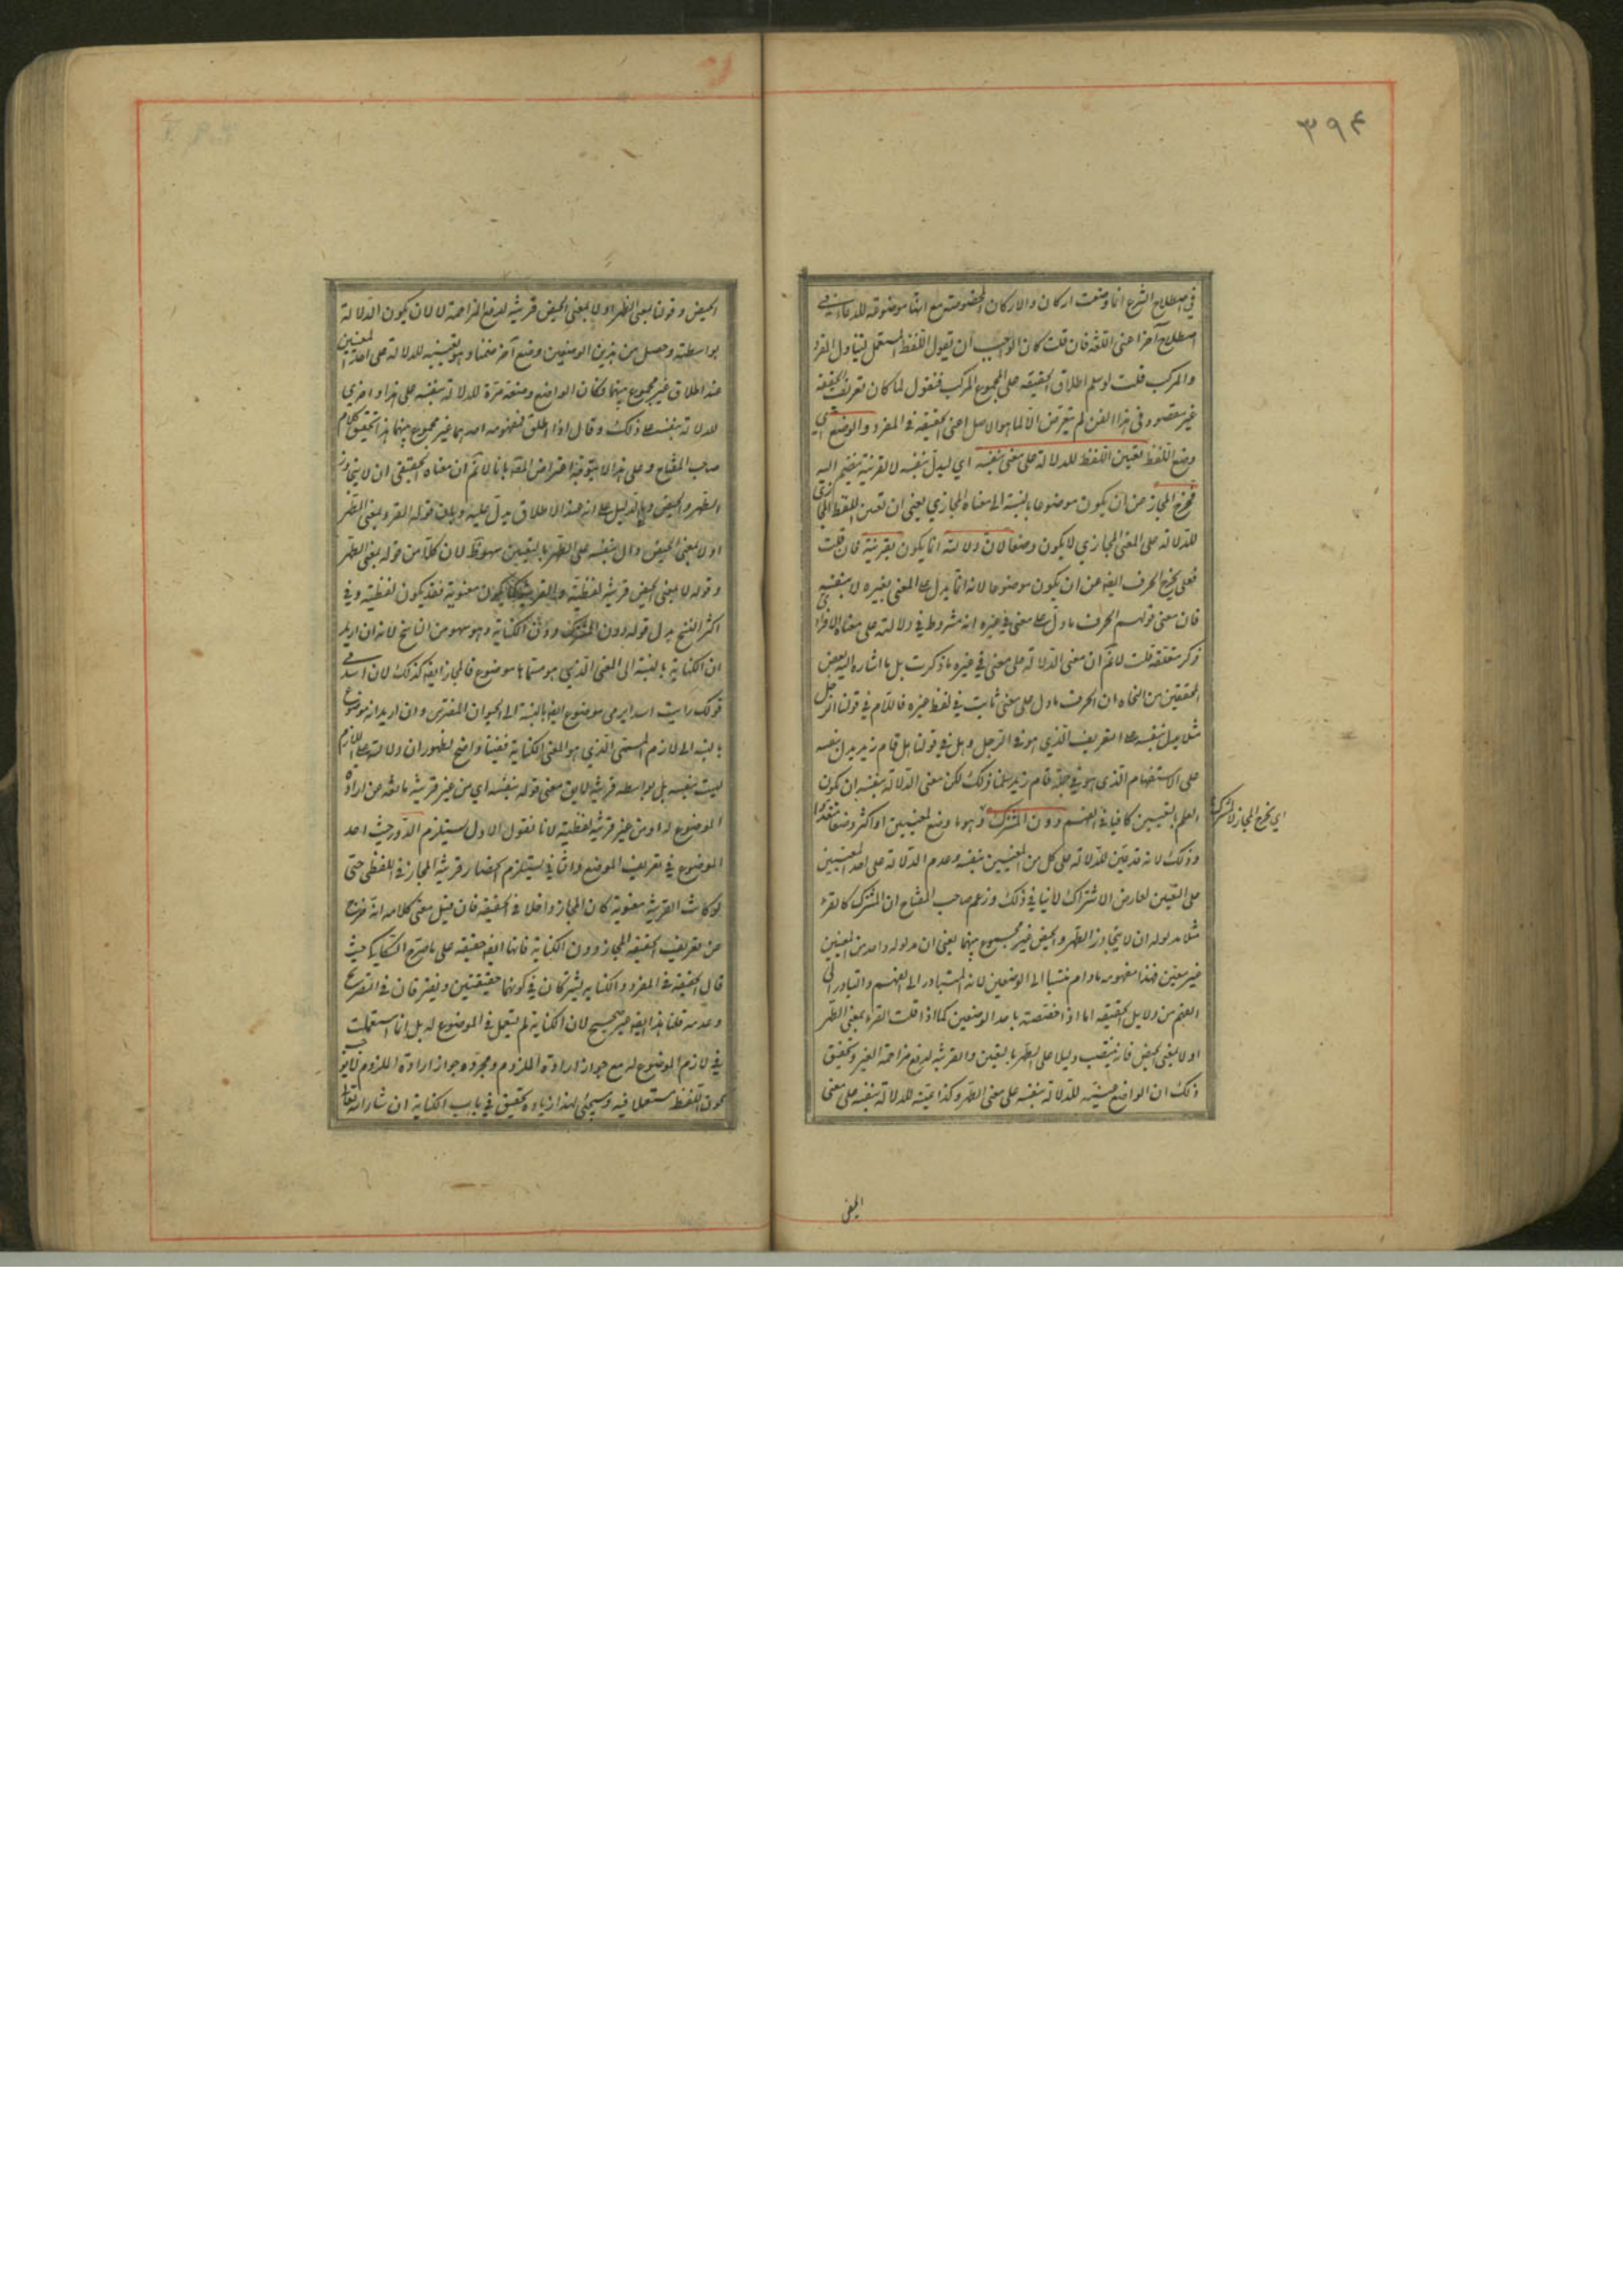 ٣٩۴
في اصطلاح الشرع انما وضعت اركان والاركان المخصوصة مع انها موضوعة للدعاء في
اصطلاح آخر اعنى اللغة فان قلت كان الواجب ان يقول اللفظ المستعمل ليتناول المفرد
والمركب قلت لو سلم اطلاق الحقيقة على المجموع المركب فنقول لما كان تعريف الحقيقة
غير مقصود فى هذا الفن لم يتعرض الا لما هو الاصل اعنى الحقيقة فى المفرد والوضع اي
وضع اللفظ تعيين اللفظ للدلالة على معنى بنفسه اي ليدل بنفسه لا بقرينة ينضم اليه
فخرج المجاز عن ان يكون موضوعا بالنسبة الى معناه المجازي يعنى ان تعين اللفظ المجازي
للدلالة على المعنى المجازي لا يكون وضعا لان دلالته انما يكون بقرينة فان قلت
فعلى يخرج الحرف ايضا عن ان يكون موضوعا لانه انما يدل على المعنى بغيره لا بنفسه
فان معنى قولهم الحرف ما دل على معنى في غيره انه مشروط في دلالته على معناه الافرادي
ذكر متعلقه قلت لا نم ان معنى الدلالة على معنى في غيره ما ذكرت بل ما اشار اليه بعض
المحققين من النحاة ان الحرف ما دل على معنى ثابت في لفظ غيره فاللام في قولنا الرجل
مثلا يدل بنفسه على التعريف الذي هو في الرجل وهل في قولنا هل قام زيد يدل بنفسه
على الاستفهام الذى هو في جملة قام زيد سلمنا ذلك لكن معنى الدلالة بنفسه ان يكون
العلم بالتعيين كافيا في الفهم دون المشترك وهو ما وضع لمعنيين او اكثر وضعا متعددا
اي يخرج المجاز لا المشترك
وذلك لانه قد عين للدلالة على كل من المعنيين بنفسه وعدم الدلالة على احد المعنيين
على التعيين لعارض الاشتراك لا ينافي ذلك وزعم صاحب المفتاح ان المشترك كالقرء
مثلا مدلوله ان لا يتجاوز الطهر والحيض غير مجموع بينهما يعنى ان مدلوله واحد من المعنيين
غير معين فهذا مفهومه ما دام منتسبا الى الوضعين لانه المتبادر الى الفهم والتبادر الى
الفهم من دلايل الحقيقة اما اذا خصصته باحد الوضعين كما اذا قلت القرء بمعنى الطهر
او لا بمعنى الحيض فانه ينتصب دليلا على الطهر بالتعيين والقرينة لدفع مزاحمة الغير وتحقيق
ذلك ان الواضع عينه للدلالة بنفسه على معنى الطهر وكذا عينه للدلالة بنفسه على معنى
الحيض
الحيض وقولنا بمعنى الطهر او لا بمعنى الحيض قرينة لدفع المزاحمة لا لان يكون الدلالة
بواسطته وحصل من هذين الوضعين وضع آخر ضمنا وهو تعيينه للدلالة على احد المعنيين
عند اطلاق غير مجموع بينهما وكان الواضع وضعه مرة للدلالة بنفسه على هذا واخرى
للدلالة بنفسه على ذلك وقال اذا اطلق فمفهومه احدهما غير مجموع بينهما هذا تحقيق كلام
صاحب المفتاح وعلى هذا لا يتوجه اعتراض المصنف بانا لا نم ان معناه الحقيقى ان لا يتجاوز
الطهر والحيض وما الدليل على انه عند الاطلاق يدل عليه وبان قوله القرء بمعنى الطهر
او لا بمعنى الحيض دال بنفسه على الطهر بالتعيين سهو ظ لان كلا من قوله بمعنى الطهر
وقوله لا بمعنى الحيض قرينة لفظية والقرينة كما يكون معنوية فقد يكون لفظية وفي
اكثر النسخ بدل قوله دون المشترك دون الكناية وهو سهو من الناسخ لانه ان اريد
ان الكناية بالنسبة الى المعنى الذي هو مسماها موضوع فالمجاز ايضا كذلك لان اسدا في
قولك رايت اسدا يرمى موضوع ايضا بالنسبة الى الحيوان المفترس وان اريد انه موضوع
بالنسبة الى لازم المسمى الذي هو المعنى الكناية ففيه واضح لظهور ان دلالته على اللازم
ليست بنفسه بل بواسطة قرينة لا يق معنى قوله بنفسه اي من غير قرينة مانعة من ارادة
الموضوع له او من غير قرينة لفظية لانا نقول الاول يستلزم الدور حيث اخذ
الموضوع في تعريف الوضع والثاني يستلزم انحصار قرينة المجاز في اللفظى حتى
لو كانت القرينة معنوية كان المجاز داخلا في الحقيقة فان قيل معنى كلامه انه خرج
عن تعريف الحقيقة المجاز دون الكناية فانها ايضا حقيقة على ما صرح السكاكي حيث
قال الحقيقة في المفرد والكناية يشتركان في كونهما حقيقتين ويفترقان في التصريح
وعدمه قلنا هذا ايضا غير صحيح لان الكناية لم يستعمل في الموضوع له بل انما استعملت
في لازم الموضوع له مع جواز ارادة الملزوم ومجرد جواز ارادة الملزوم لا يوجب
كون اللفظ مستعملا فيه وسيجئ لهذا زيادة تحقيق في باب الكناية ان شاء الله تعالى